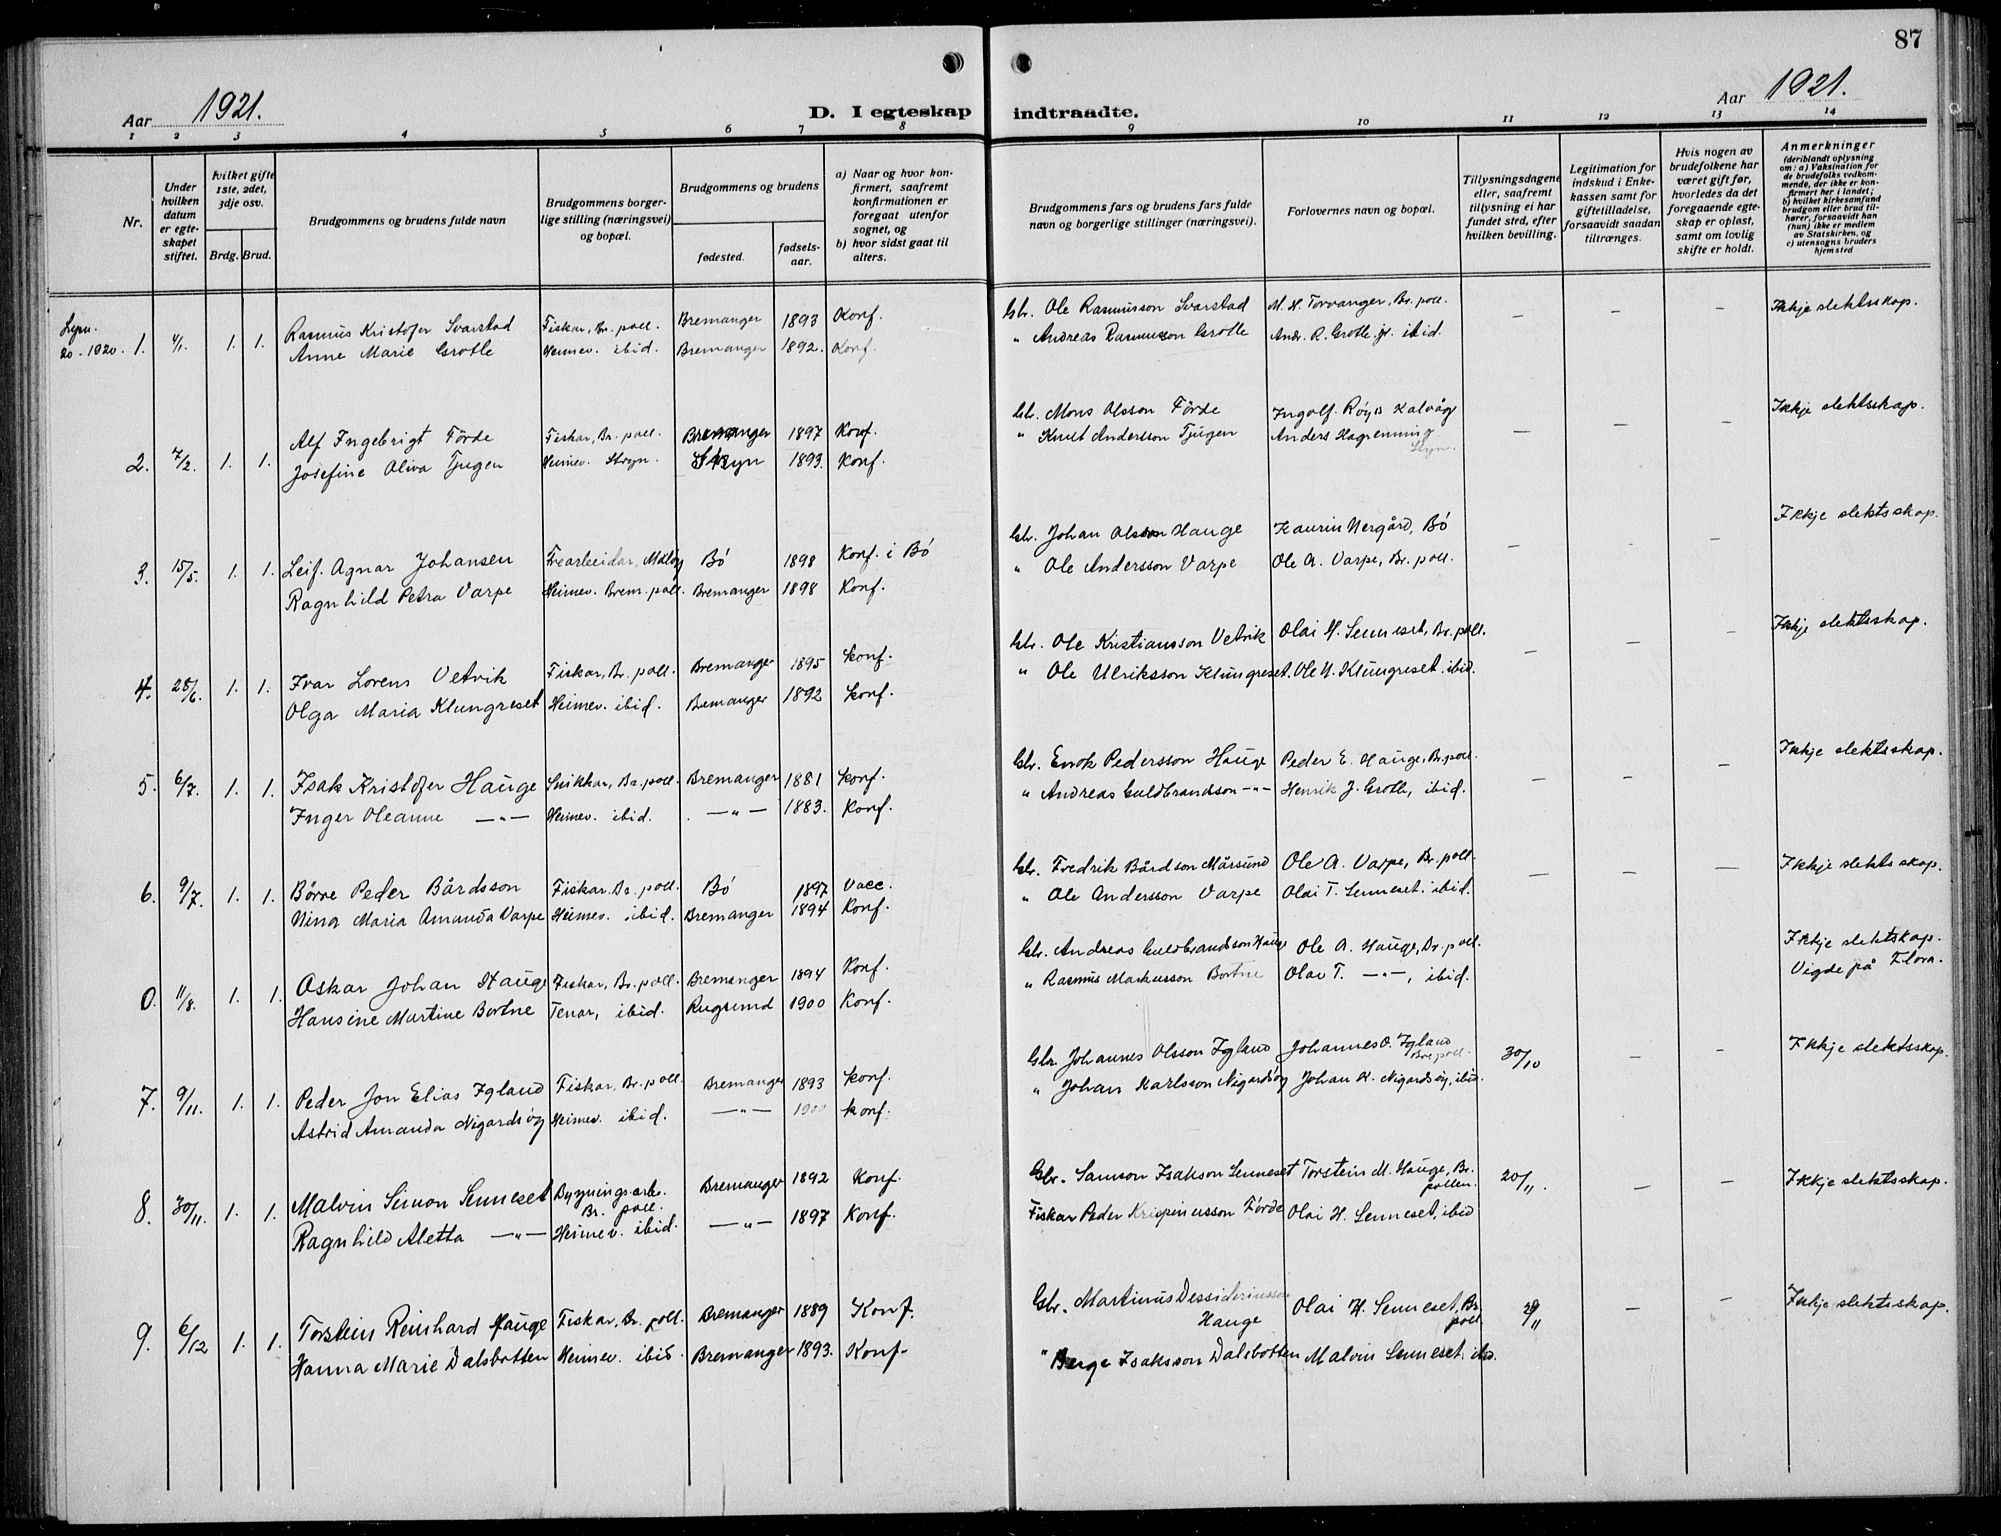 87
Aar 1921. D. I egteskap indtraadte. Aar 1921.
1 2 3 4 5 6 7 8 9 10 11 12 13 14
Nr.
Under hvilken datum er egteskapet stiftet.
hvilket gifte 1ste, 2det, 3dje osv.
Brdg. Brud.
Brudgommens og brudens fulde navn
Brudgommens borgerlige stilling (næringsvei) og bopæl.
Brudgommens og brudens
fødested.
fødselsaar.
a) Naar og hvor konfirmert, saafremt konfirmationen er foregaat utenfor sognet, og
b) hvor sidst gaat til alters.
Brudgommens fars og brudens fars fulde navn og borgerlige stillinger (næringsvei).
Forlovernes navn og bopæl.
Tillysningsdagene eller, saafremt tillysning ei har fundet sted, efter hvilken bevilling.
Legitimation for indskud i Enkekassen samt for giftetilladelse, forsaavidt saadan tiltrænges.
Hvis nogen av brudefolkene har været gift før, hvorledes da det foregaaende egteskap er opløst, samt om lovlig skifte er holdt.
Anmerkninger
(deriblandt oplysning om: a) Vaksination for de brudefolks vedkommende, der ikke er konfirmert her i landet; b) hvilket kirkesamfund brudgom eller brud tilhører, forsaavidt han (hun) ikke er medlem av Statskirken, og c) utensogns bruders hjemsted
20 - 1920. 1. 4/1. 1. 1. Rasmus Kristofer Svarstad Fiskar, Br. poll. Bremanger 1893 Konf. Gbr. Ole Rasmusson Svarstad M. H. Torvanger, Br. poll. – – – Ikkje slektsskap.
Anne Marie Grotle Heimev. ibid. Bremanger 1892. Konf. " Andreas Rasmusson Grotle Andr. R. Grotle jr. ibid.
2. 7/2. 1. 1. Alf Ingebrigt Förde Fiskar, Br. poll. Bremanger 1897 Konf. Gbr. Mons Olsson Förde Ingolf Röys Kalvåg – – – Ikkje slektsskap.
Josefine Oliva Tjugen Heimev. Stryn. Stryn 1893. Konf. " Knut Andersson Tjugen Anders Hagrenning Stryn.
3. 15/5. 1. 1. Leif Agnar Johansen Måløy Bö 1898 Konf. i Bö Gbr. Johan Olsson Hauge Kaurin Nergård, Bö – – – Ikkje slektsskap.
Ragnhild Petra Varpe Heimev. Brem. poll. Bremanger 1898 Konf. " Ole Andersson Varpe Ole A. Varpe, Br. poll.
4. 28/6. 1. 1. Ivar Lorens Vetvik Fiskar, Br. poll. Bremanger 1895 Konf. Gbr. Ole Kristiansson Vetvik Olai H. Senneset, Br. poll. – – – Ikkje slektsskap.
Olga Maria Klungreset Heimev. ibid. Bremanger 1892 Konf. " Ole Ulriksson Klungreset. Ole U. Klungreset. ibid.
5. 6/7. 1. 1. Isak Kristofer Hauge Snikkar, Br. poll. Bremanger 1881 Konf. Gbr. Enok Pedersson Hauge Peder E. Hauge, Br. poll. – – – Ikkje slektsskap.
Inger Oleanne — " — Heimev. ibid. — " — 1883. Konf. " Andreas Guldbrandson — " — Henrik J. Grotle, ibid.
6. 9/7. 1. 1. Börre Peder Bårdsson Fiskar, Br. poll. Bö 1897 Vacc. Gbr. Fredrik Bårdson Mårsund Ole A. Varpe, Br. poll. – – – Ikkje slektsskap.
Nina Maria Amanda Varpe Heimev. ibid. Bremanger 1894 Konf. " Ole Andersson Varpe Olai T. Senneset. ibid.
0. 11/8. 1. 1. Oskar Johan Hauge Fiskar, Br. poll. Bremanger 1894 Konf. Gbr. Andreas Guldbrandson Hauge Ole A. Hauge, Br. poll. Ikkje slektskap.
Hansine Martine Bortne Tenar, ibid. Rugsund 1900 Konf. " Rasmus Markusson Bortne Olai T. — " —, ibid. Vigde på Flora.
7. 9/11. 1. 1. Peder Jon Elias Igland Fiskar, Br. poll. Bremanger 1893 Konf. Gbr. Johannes Olsson Igland Johannes O. Igland Br. poll. 30/10 – – Ikkje slektsskap.
Astrid Amanda Nigardsöy Heimev. ibid. — " — 1900 Konf. " Johan Karlsson Nigardsöy Johan K. Nigardsöy, ibid.
8. 30/11. 1. 1. Malvin Simon Senneset Bygningsarb. Br. poll. Bremanger 1892 Konf. Gbr. Samson Isakson Senneset Torstein M. Hauge, Br. pollen. 20/11. – – Ikkje slektsskap.
Ragnhild Aletta — " — Heimev. ibid. — " — 1897 Konf. Fiskar Peder Förde Olai H. Senneset, ibid
9. 6/12 1. 1. Torstein Reinhard Hauge Fiskar, Br. poll. Bremanger 1889 Konf. Gbr. Martinus Dessideriusson Hauge Olai H. Senneset, Br. poll. – – Ikkje slektsskap.
Hanna Marie Dalsbotten Heimev. ibid. Bremanger 1893. Konf. " Berge Isaksson Dalsbotten Malvin Senneset. ibid.